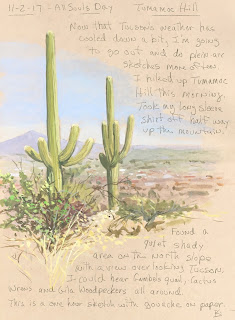 11-2-17 - All Souls Day Tumamoc Hill
Now that Tucson's weather has
cooled down a bit, I'm going
to go out and do plein air
sketches more often.
I hiked up Tumamoc
Hill this morning.
Took my long sleeve
shirt off half way
up the mountain.
Found a
quiet shady
area on the North slope
with a view over looking Tucson.
I could hear Gambels quail, Cactus
Wrens and Gila Woodpeckers all around.
This is a one hour sketch with gouache on paper.